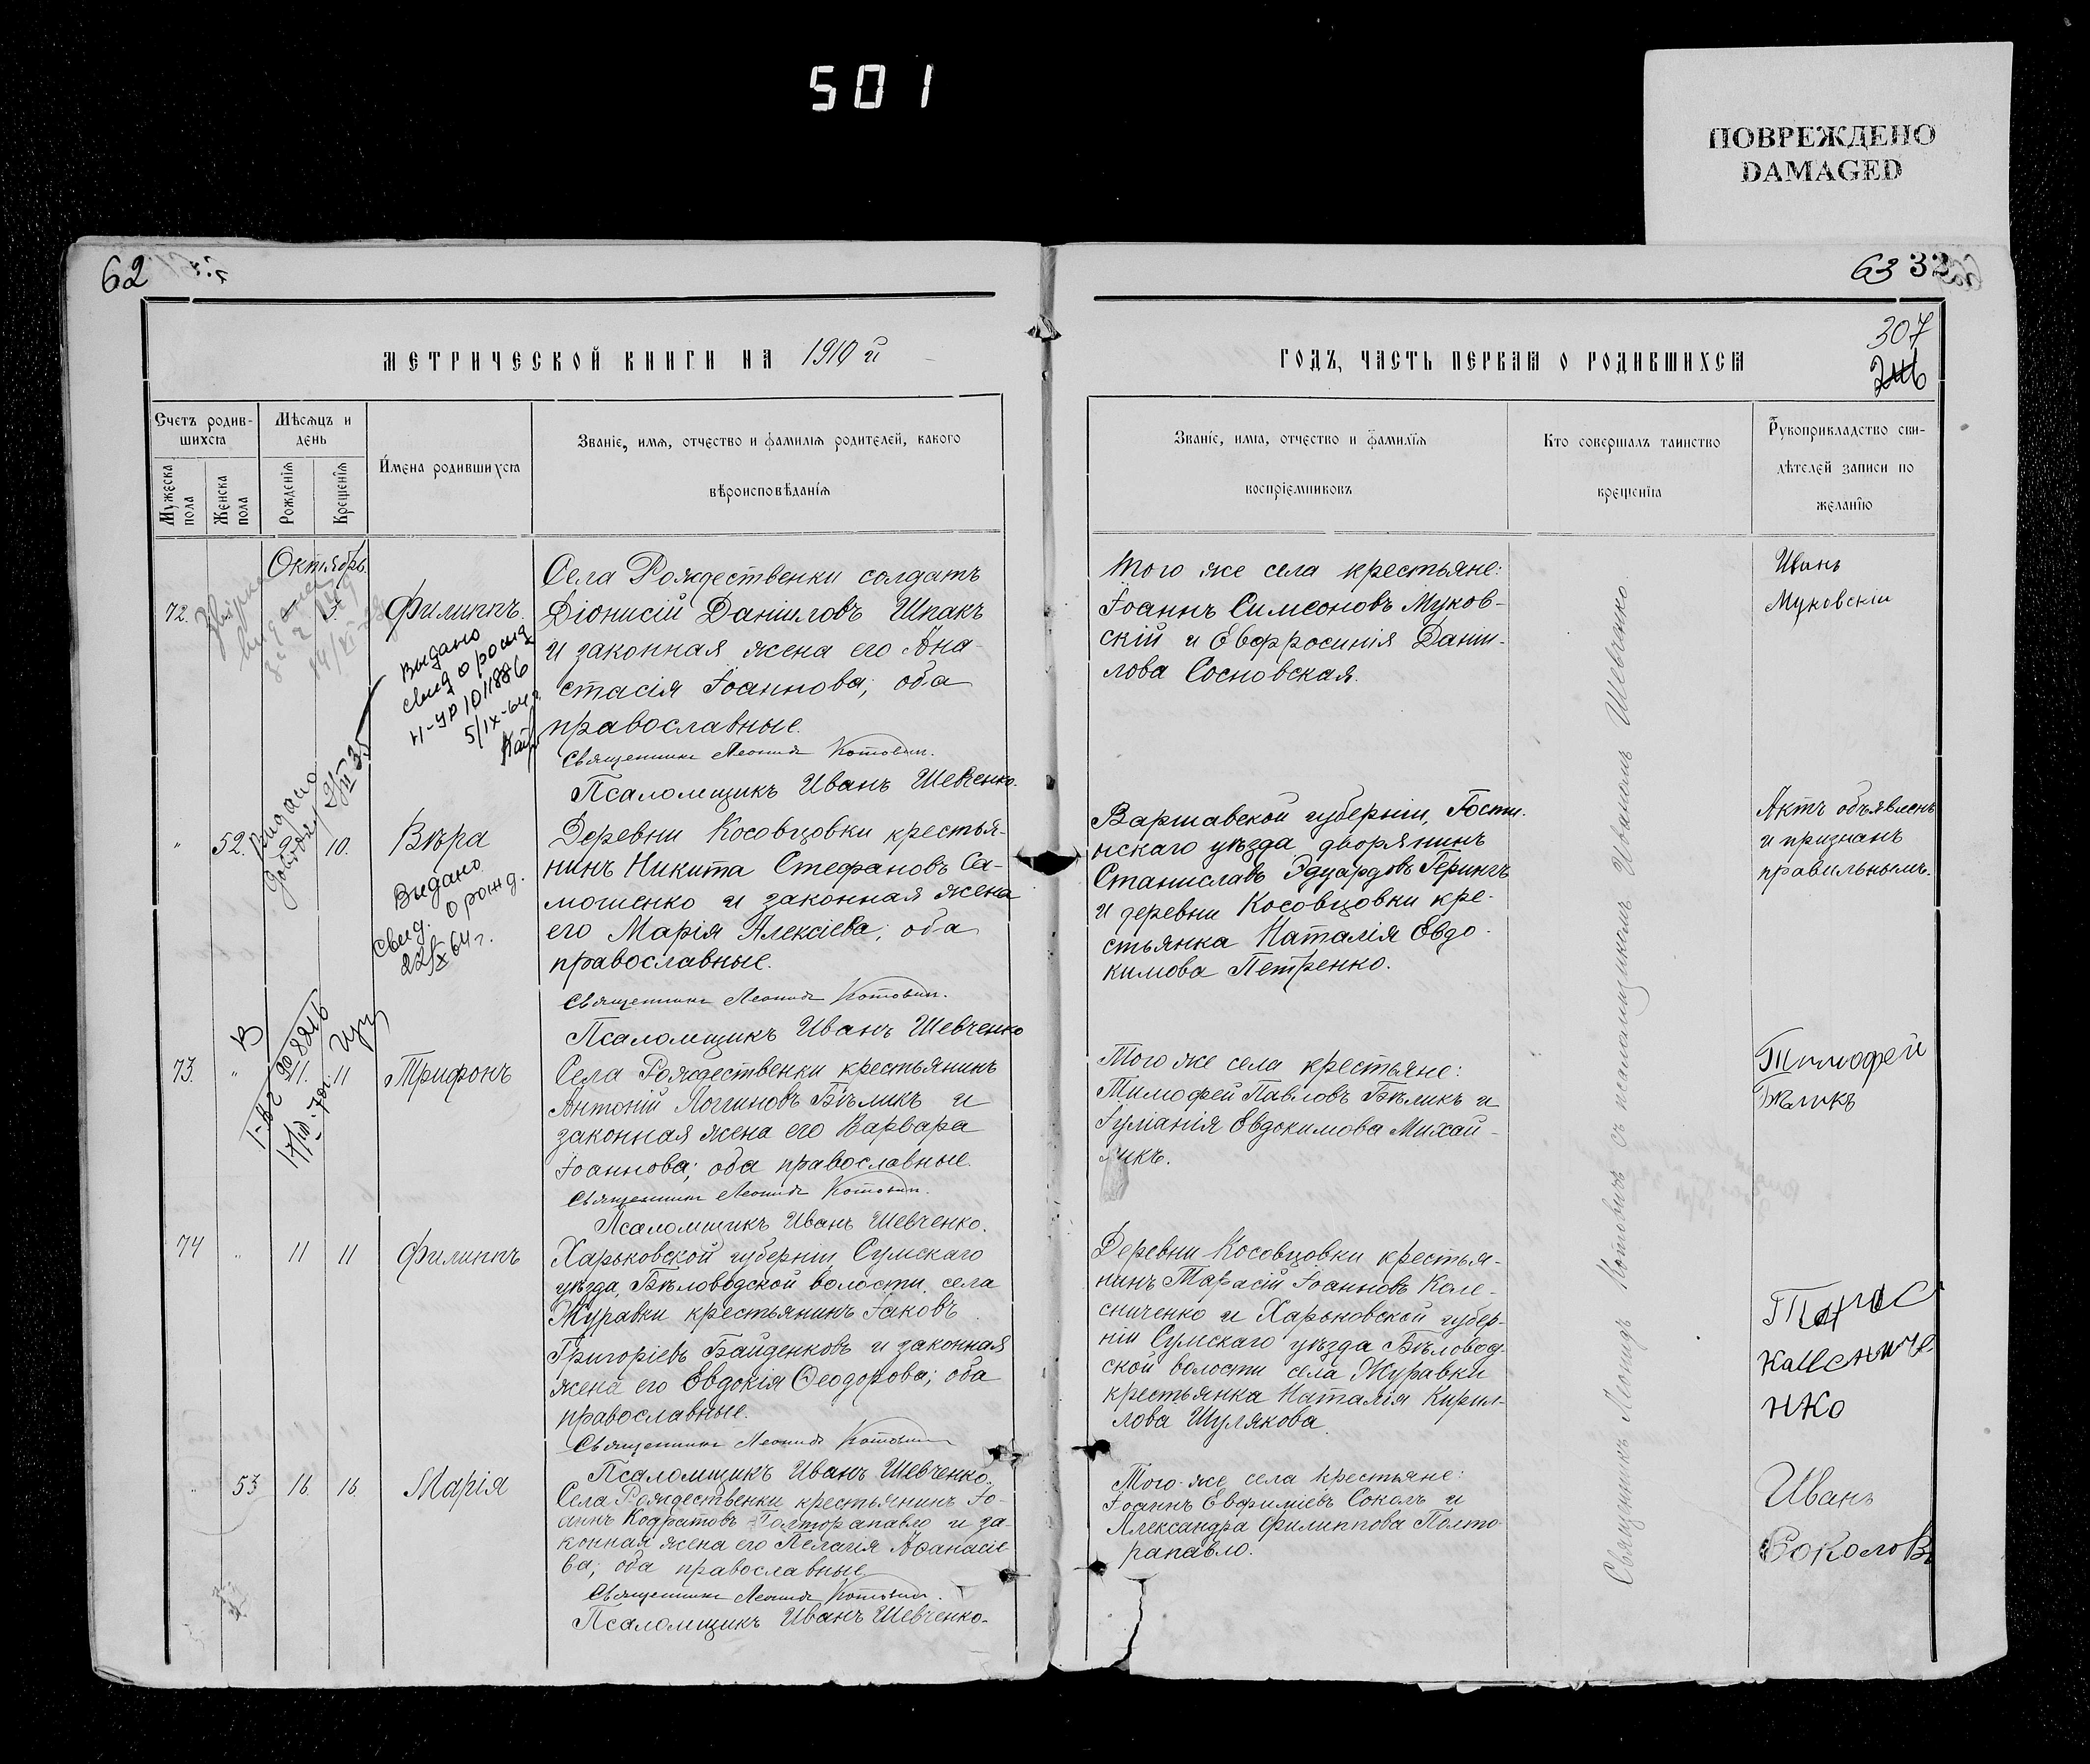 501
ПОВРЕЖДЕНО
DAMAGED
62
63 32
307
МЕТРИЧЕСКОЙ КНИГИ НА 1910 й
Счетъ родив-
шихся
Мѣсяцъ и
день
Имена родившихся
Званіе, имя, отчество и фамилія родителей, какого
вѣроисповѣданія
Мужеска
пола
Женска
пола
Рожденія
Крещенія
Октябрь.
72.
Филиппъ.
Села Рождественки солдатъ
Діонисій Даніиловъ Шпакъ
и законная жена его Ана-
стасія Іоаннова; оба
православные.
Священникъ Леонидъ Котович.
Псаломщикъ Иванъ Шевченко.
Выдано
свид о рожд
11-УР 1011886
5/IX-64 г
Выдано
" 52. 9. 10. Вѣра
Деревни Косовцовки крестья-
нинъ Никита Стефановъ Са-
мошенко и законная жена
его Марія Алексіева; оба
православные.
Священникъ Леонидъ Котович.
Псаломщикъ Иванъ Шевченко
Выдано
свид. о рожд.
22/X 64 г.
73. " 11. 11 Трифонъ
Села Рождественки крестьянинъ
Антоній Логгиновъ Бѣликъ и
законная жена его Варвара
Іоаннова; оба православные.
Священникъ Леонидъ Котович.
Псаломщикъ Иванъ Шевченко.
74 " 11 11 Филиппъ
Харьковской губерніи Сумскаго
уѣзда, Бѣловодской волости, села
Журавки крестьянинъ Іаковъ
Григоріевъ Байденковъ и законная
жена его Евдокія Ѳеодорова; оба
православные.
Священникъ Леонидъ Котович
Псаломщикъ Иванъ Шевченко.
" 53 16. 16. Марія
Села Рождественки крестьянинъ Іо-
аннъ Кодратовъ Полторапавло и за-
конная жена его Пелагія Аѳанасіе-
ва; оба православные
Священникъ Леонидъ Котович.
Псаломщикъ Иванъ Шевченко.
ГОДЪ, ЧАСТЬ ПЕРВАЯ О РОДИВШИХСЯ
Званіе, имя, отчество и фамилія
воспріемниковъ
Кто совершалъ таинство
крещенія
Рукоприкладство сви-
дѣтелей записи по
желанію
Того же села крестьяне:
Іоаннъ Симеоновъ Муков-
скій и Евфросинія Даніи-
лова Сосновская.
Иванъ
Муковскіи
Варшавской губерніи, Гости-
нскаго уѣзда дворянинъ
Станиславъ Эдуардовъ Герингъ
и деревни Косовцовки кре-
стьянка Наталія Евдо-
кимова Петренко.
Актъ объявленъ
и признанъ
правильнымъ.
Того же села крестьяне:
Тимофей Павловъ Бѣликъ и
Іуліанія Евдокимова Михай-
ликъ.
Тимофей
Бѣликъ
Деревни Косовцовки крестья-
нинъ Тарасій Іоанновъ Коле-
сниченко и Харьковской губер-
ніи Сумскаго уѣзда Бѣловод-
ской волости села Журавки
крестьянка Наталія Кирил-
лова Шулякова.
Того-же села крестьяне:
Іоаннъ Евфиміевъ Соколъ и
Александра Филиппова Полто-
рапавло.
Иванъ
Соколовъ
Священникъ Леонидъ Котовичъ съ псаломщикомъ Иваномъ Шевченко